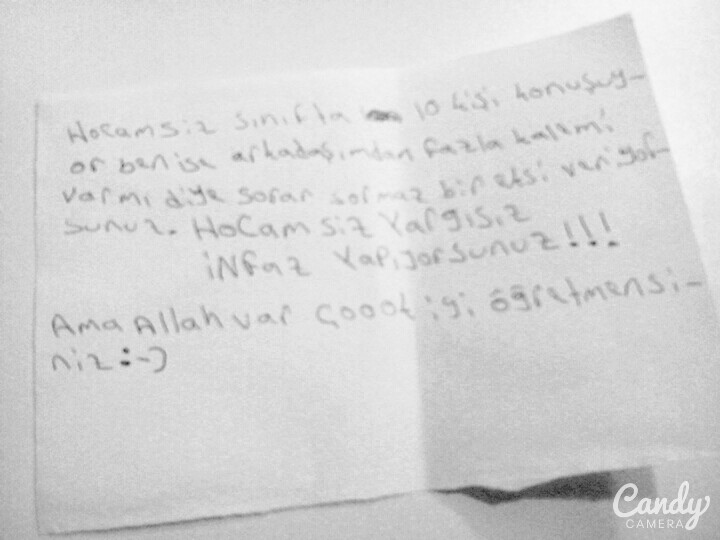 Hocam siz sınıfta 10 kişi konuşuy-
or ben ise arkadaşımdan fazla kalemi
varmı diye sorar sormaz bir eksi veriyor-
sunuz. Hocam siz Yargısız
iNfaz Yapıyorsunuz!!!
Ama Allah var çoook iyi öğretmensi-
niz :-)
Candy
CAMERA